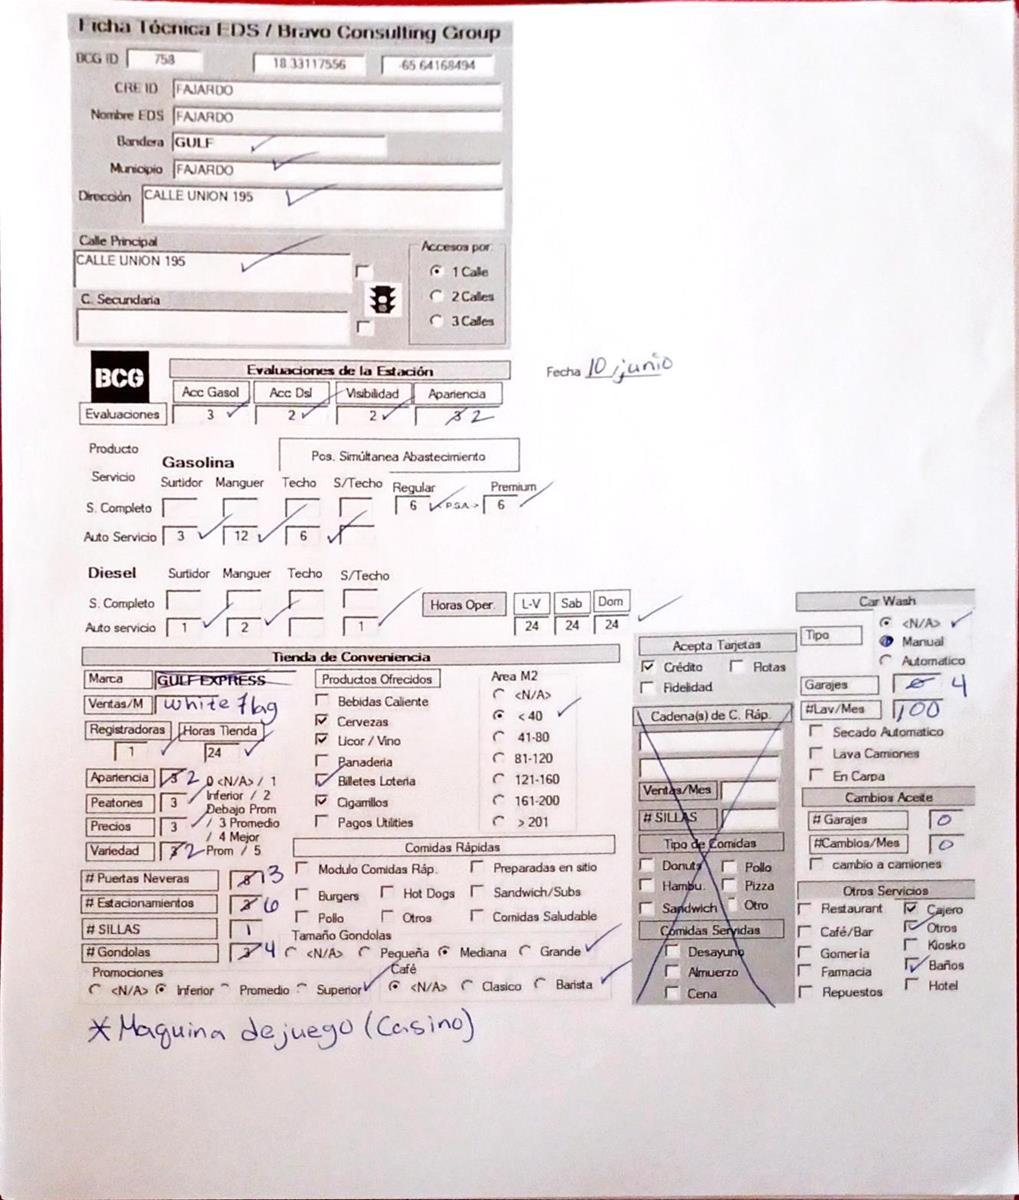 Ficha Técnica EDS / Bravo Consulting Group
BCG ID 758 18.33117556 -65.64168494
CRE ID FAJARDO
Nombre EDS FAJARDO
Bandera GULF
Municipio FAJARDO
Dirección CALLE UNION 195
Calle Principal
CALLE UNION 195
C. Secundaria
Accesos por:
1 Calle
2 Calles
3 Calles
BCG
Evaluaciones de la Estación
Fecha 10 junio
Acc Gasol Acc Dsl Visibilidad Apariencia
Evaluaciones 3 2 2 3 2
Producto
Servicio
Gasolina
Pos. Simúltanea Abastecimiento
Surtidor Manguer Techo S/Techo Regular Premium
S. Completo 6 <P.S.A.> 6
Auto Servicio 3 12 6
Diesel Surtidor Manguer Techo S/Techo
S. Completo
Auto servicio 1 2 1
Horas Oper. L-V Sab Dom
24 24 24
Tienda de Conveniencia
Marca GULF EXPRESS
Ventas/M White flag
Registradoras Horas Tienda
1 24
Apariencia 3 2
Peatones 3
Precios 3
Variedad 3 2
0 <N/A> / 1
Inferior / 2
Debajo Prom
/ 3 Promedio
/ 4 Mejor
Prom / 5
# Puertas Neveras 8 13
# Estacionamientos 3 6
# SILLAS 1
# Gondolas 3 4
Productos Ofrecidos
Bebidas Caliente
Cervezas
Licor / Vino
Panaderia
Billetes Loteria
Cigarrillos
Pagos Utilities
Area M2
<N/A>
< 40
41-80
81-120
121-160
161-200
> 201
Comidas Rápidas
Modulo Comidas Ráp. Preparadas en sitio
Burgers Hot Dogs Sandwich/Subs
Pollo Otros Comidas Saludable
Tamaño Gondolas
<N/A> Pequeña Mediana Grande
Promociones
<N/A> Inferior Promedio Superior
Café
<N/A> Clasico Barista
Acepta Tarjetas
Crédito Flotas
Fidelidad
Cadena(s) de C. Ráp.
Ventas/Mes
# SILLAS
Tipo de Comidas
Donuts Pollo
Hambu. Pizza
Sandwich Otro
Comidas Servidas
Desayuno
Almuerzo
Cena
Car Wash
Tipo
<N/A>
Manual
Automatico
Garajes 0 4
#Lav/Mes 100
Secado Automatico
Lava Camiones
En Carpa
Cambios Aceite
# Garajes 0
#Cambios/Mes 0
cambio a camiones
Otros Servicios
Restaurant Cajero
Café/Bar Otros
Gomeria Kiosko
Farmacia Baños
Repuestos Hotel
* Maquina de juego (Casino)